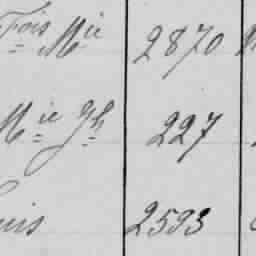 Fois Mie 2870
Mie Jh 227
uis 2593